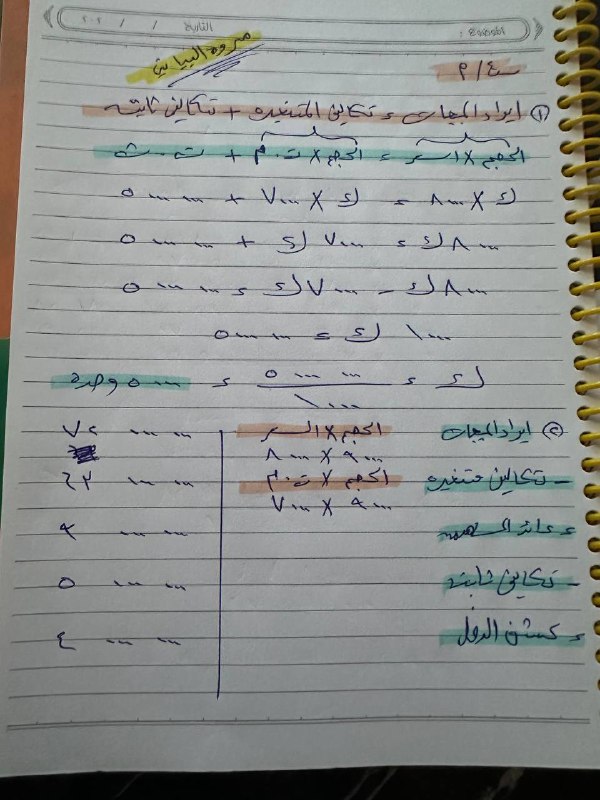 الموضوع : التاريخ / / ٢٠٢
مروه البياتي
س٤/ ٩
① ايراد المبيعات = تكاليف المتغيره + تكاليف ثابته
الحجم × السعر = الحجم × ت.م + ت.ث
ك × ٨٠٠٠ = ك × ٧٠٠٠ + ٥٠٠٠٠٠٠
٨٠٠٠ ك = ٧٠٠٠ ك + ٥٠٠٠٠٠٠
٨٠٠٠ ك - ٧٠٠٠ ك = ٥٠٠٠٠٠٠
١٠٠٠ ك = ٥٠٠٠٠٠٠
ك = ٥٠٠٠٠٠٠ / ١٠٠٠ = ٥٠٠٠ وحده
② ايراد المبيعات الحجم × السعر ٧٢ ٠٠٠ ٠٠٠
٩٠٠٠ × ٨٠٠٠
- تكاليف متغيره الحجم × ت.م ٦٣ ٠٠٠ ٠٠٠
٩٠٠٠ × ٧٠٠٠
= عائد المساهمه ٩ ٠٠٠ ٠٠٠
- تكاليف ثابته ٥ ٠٠٠ ٠٠٠
= كشف الدخل ٤ ٠٠٠ ٠٠٠